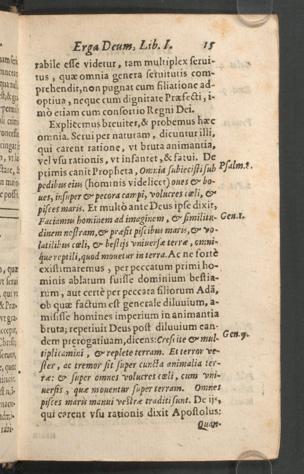 Erga Deum, Lib. I. 15
rabile esse videtur, tam multiplex serui-
tus, quæ omnia genera seruitutis com-
prehendit, non pugnat cum filiatione ad-
optiua, neque cum dignitate Præfecti, i-
mò etiam cum consortio Regni Dei.
Explicemus breuiter, & probemus hæc
omnia. Serui per naturam, dicuntur illi,
qui carent ratione, vt bruta animantia,
vel vsu rationis, vt infantes, & fatui. De
primis canit Propheta, Omnia subiecisti sub Psalm. 8.
pedibus eius (hominis videlicet) oues & bo-
ues, insuper & pecora campi, volucres cœli, &
pisces maris. Et multò ante Deus ipse dixit,
Faciamus hominem ad imaginem, & similitu- Gen. 1.
dinem nostram, & præsit piscibus maris, & vo-
latilibus cœli, & bestijs vniuersæ terræ, omni-
que reptili, quod mouetur in terra. Ac ne fortè
existimaremus, per peccatum primi ho-
minis ablatum fuisse dominium bestia-
rum, aut certè per peccata filiorum Adã,
ob quæ factum est generale diluuium, a-
misisse homines imperium in animantia
bruta; repetiuit Deus post diluuium ean-
dem prærogatiuam, dicens: Crescite & mul- Gen. 9.
tiplicamini, & replete terram. Et terror ve-
ster, ac tremor sit super cuncta animalia ter-
ræ: & super omnes volucres cœli, cum vni-
uersis, quæ mouentur super terram. Omnes
pisces maris manui vestræ traditi sunt. De ijs,
qui carent vsu rationis dixit Apostolus:
Quan-